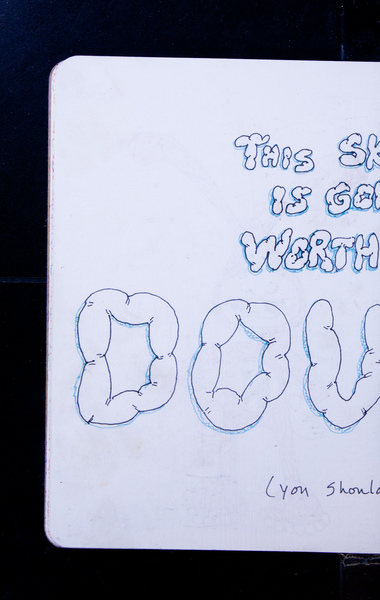 THIS SK
IS GO
WORTH
DOU
(you should